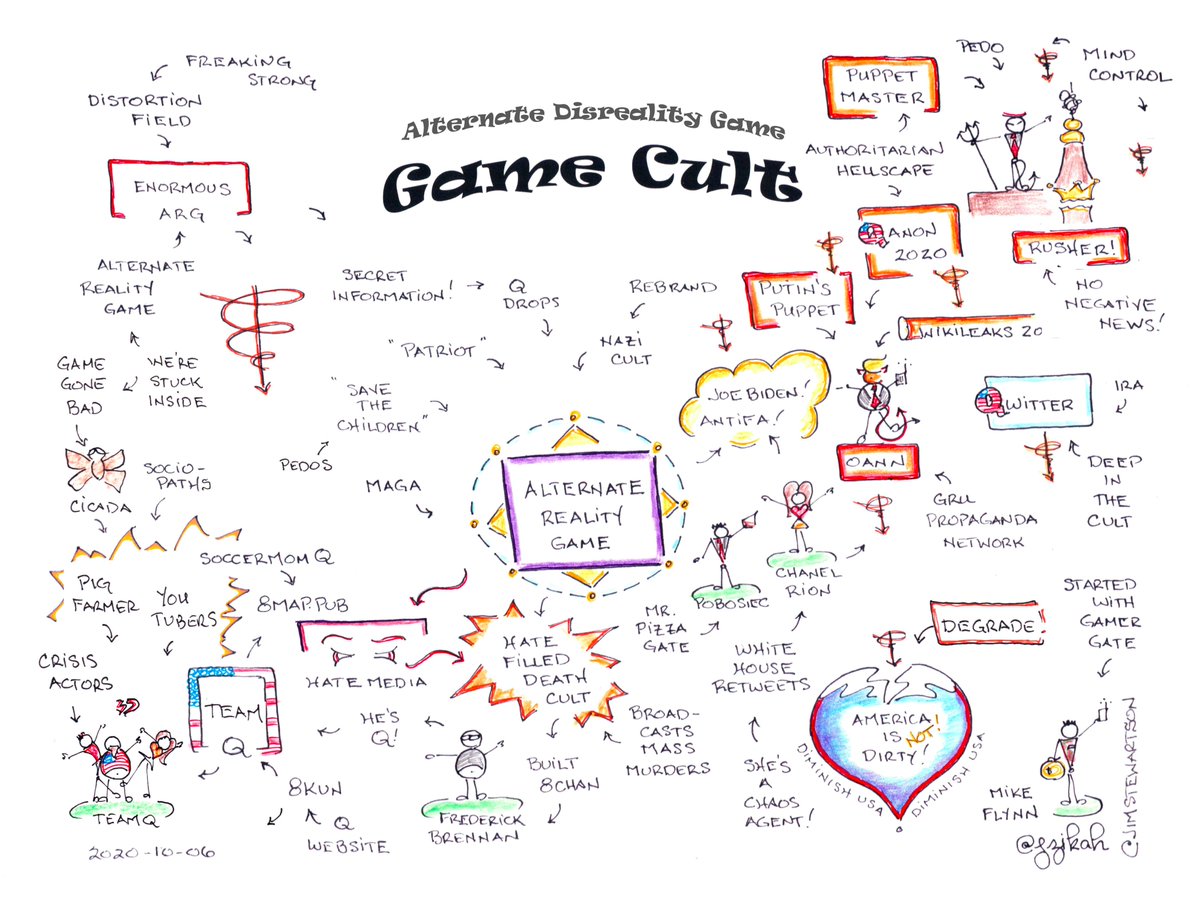 Alternate Disreality Game
Game Cult
FREAKING
STRONG
DISTORTION
FIELD
ENORMOUS
ARG
ALTERNATE
REALITY
GAME
GAME
GONE
BAD
WE'RE
STUCK
INSIDE
CICADA
SOCIO-
PATHS
SECRET
INFORMATION!
Q
DROPS
REBRAND
NAZI
CULT
"PATRIOT"
"SAVE
THE
CHILDREN"
PEDOS
MAGA
ALTERNATE
REALITY
GAME
PUPPET
MASTER
PEDO
MIND
CONTROL
AUTHORITARIAN
HELLSCAPE
QANON
2020
RUSHER!
NO
NEGATIVE
NEWS!
PUTIN'S
PUPPET
WIKILEAKS 20
JOE BIDEN!
ANTIFA!
OANN
QWITTER
IRA
DEEP
IN
THE
CULT
GRU
PROPAGANDA
NETWORK
CHANEL
RION
POBOSIEC
MR.
PIZZA
GATE
WHITE
HOUSE
RETWEETS
SHE'S
A
CHAOS
AGENT!
SOCCERMOM Q
PIG
FARMER
YOU
TUBERS
8MAP.PUB
CRISIS
ACTORS
HATE MEDIA
HATE
FILLED
DEATH
CULT
TEAM
Q
HE'S
Q!
TEAM Q
8KUN
Q
WEBSITE
FREDERICK
BRENNAN
BUILT
8CHAN
BROAD-
CASTS
MASS
MURDERS
DEGRADE!
AMERICA
IS NOT!
DIRTY!
DIMINISH USA
DIMINISH USA
STARTED
WITH
GAMER
GATE
MIKE
FLYNN
2020-10-06
@gzikah
©JIMSTEWARTSON